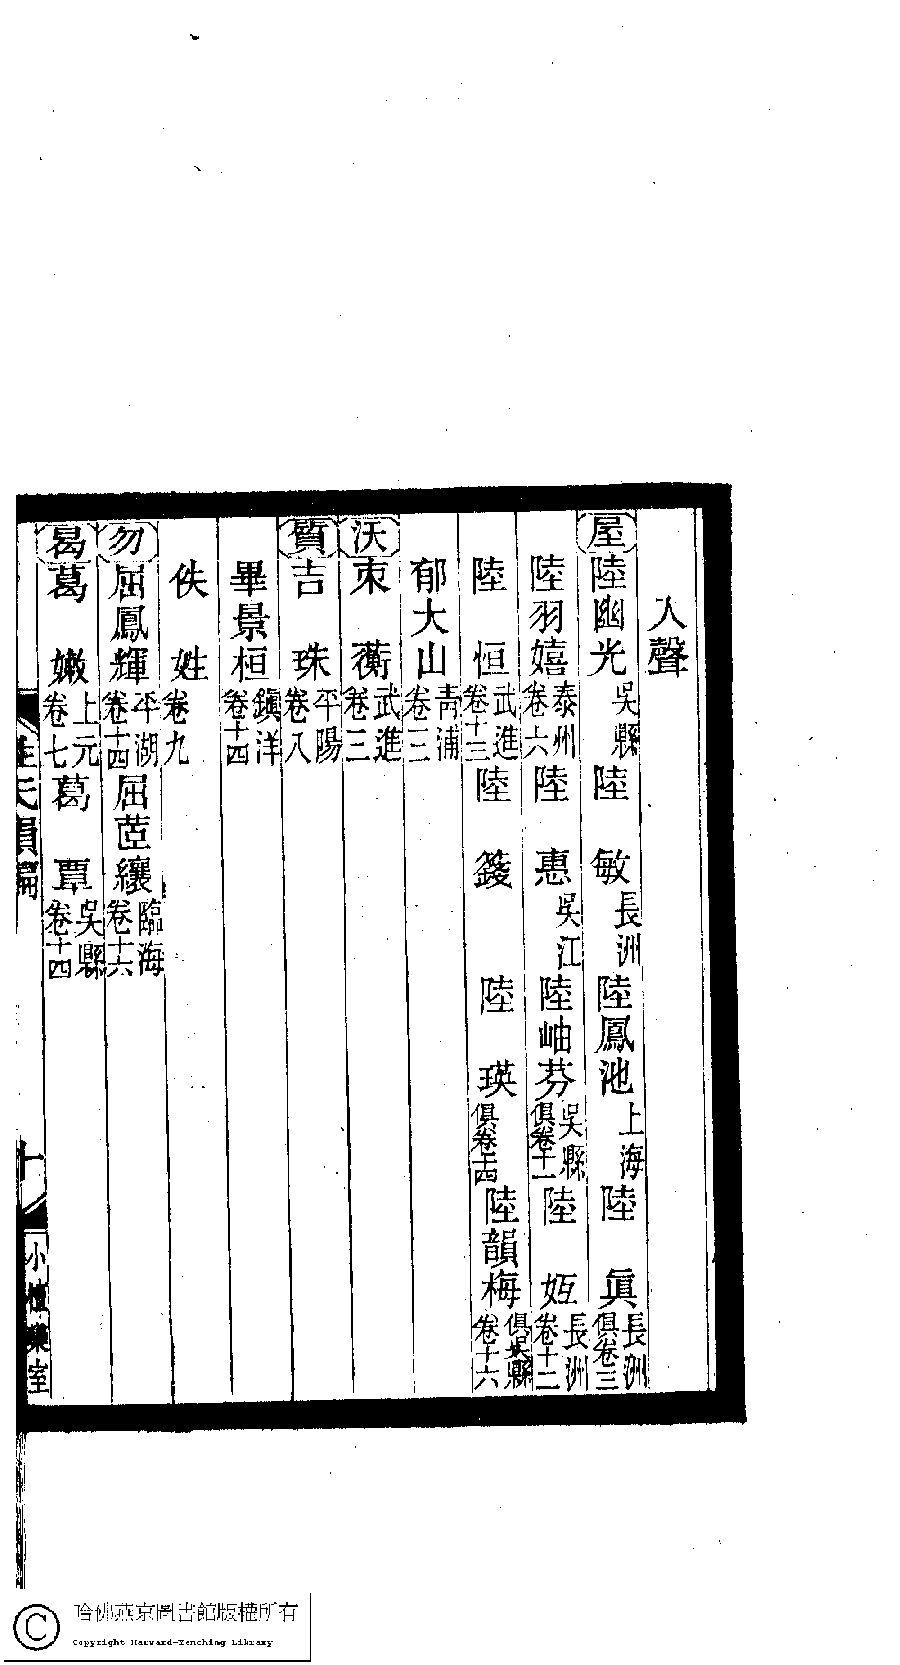 入聲
屋 陸幽光 吳縣 陸敏 長洲 陸鳳池 上海 陸眞 長洲 俱卷三
陸羽嬉 泰州 卷六 陸惠 吳江 陸岫芬 吳縣 俱卷十一 陸姮 長洲 卷十二
陸恒 武進 卷十三 陸箋 陸瑛 俱卷十四 陸韻梅 俱吳縣 卷十六
郁大山 靑浦 卷三
沃 束蘅 武進 卷三
質 吉珠 平陽 卷八
畢景桓 鎭洋 卷十四
佚姓 卷九
勿 屈鳳輝 平湖 卷十四 屈茝纕 臨海 卷十六
曷 葛嫩 上元 卷七 葛覃 吳縣 卷十四
姓氏韻編
十
小檀欒室
哈佛燕京圖書館版權所有
Copyright Harvard-Yenching Library